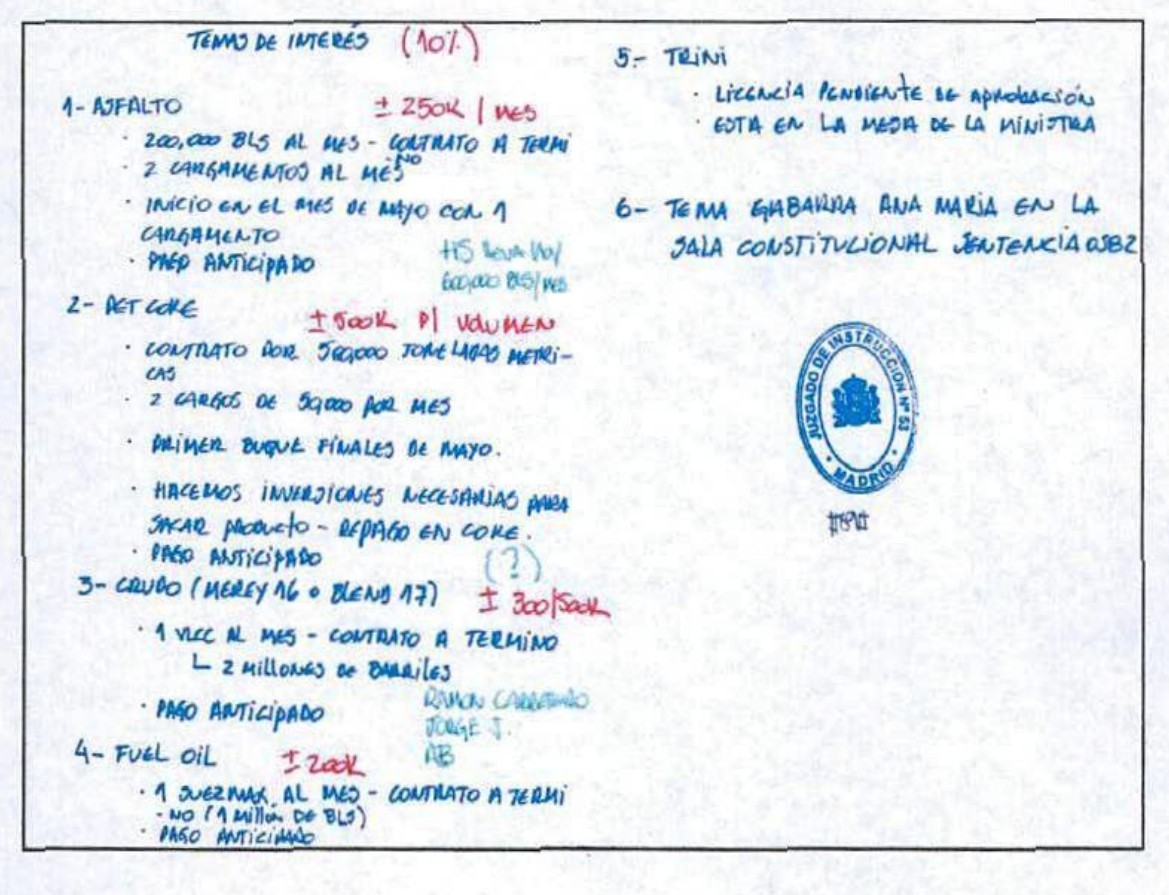 TEMAS DE INTERES (10%)
1- ASFALTO ± 250K / MES
· 200,000 BLS AL MES - CONTRATO A TERMI
NO
· 2 CARGAMENTOS AL MES
· INICIO EN EL MES DE MAYO CON 1
CARGAMENTO
· PAGO ANTICIPADO
HS
600,000 BLS/MES
2- PET COKE ± 500K P/ VOLUMEN
· CONTRATO POR 500,000 TONELADAS METRI-
CAS
· 2 CARGOS DE 50,000 POR MES
· PRIMER BUQUE FINALES DE MAYO.
· HACEMOS INVERSIONES NECESARIAS PARA
SACAR PRODUCTO - REPAGO EN COKE.
· PAGO ANTICIPADO
(?)
3- CRUDO (MEREY 16 o BLEND 17) ± 300/500K
· 1 VLCC AL MES - CONTRATO A TERMINO
2 MILLONES DE BARRILES
· PAGO ANTICIPADO
RAMON CARRETERO
JORGE J.
AB
4- FUEL OIL ± 200K
· 1 SUEZMAX AL MES - CONTRATO A TERMI
- NO (1 MILLON DE BLS)
· PAGO ANTICIPADO
5.- TRINI
· LICENCIA PENDIENTE DE APROBACIÓN
ESTA EN LA MESA DE LA MINISTRA
6- TEMA GABARRA ANA MARIA EN LA
SALA CONSTITUCIONAL SENTENCIA 0582
JUZGADO DE INSTRUCCION Nº 53
· MADRID ·